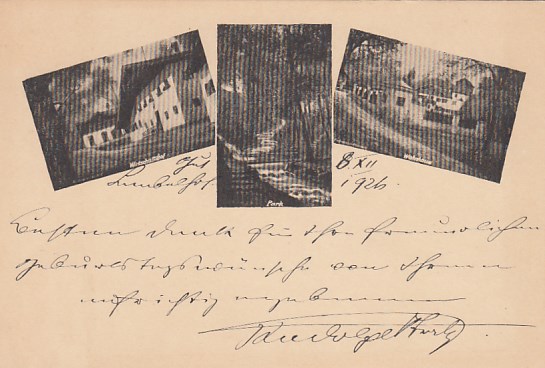 Wirtschaftshof
Park
Wohnhaus
Gut 8 XII
1926.
Besten Dank für Ihre freundlichen
Geburtstagswünsche von Ihrem
aufrichtig ergebenen
Rudolf